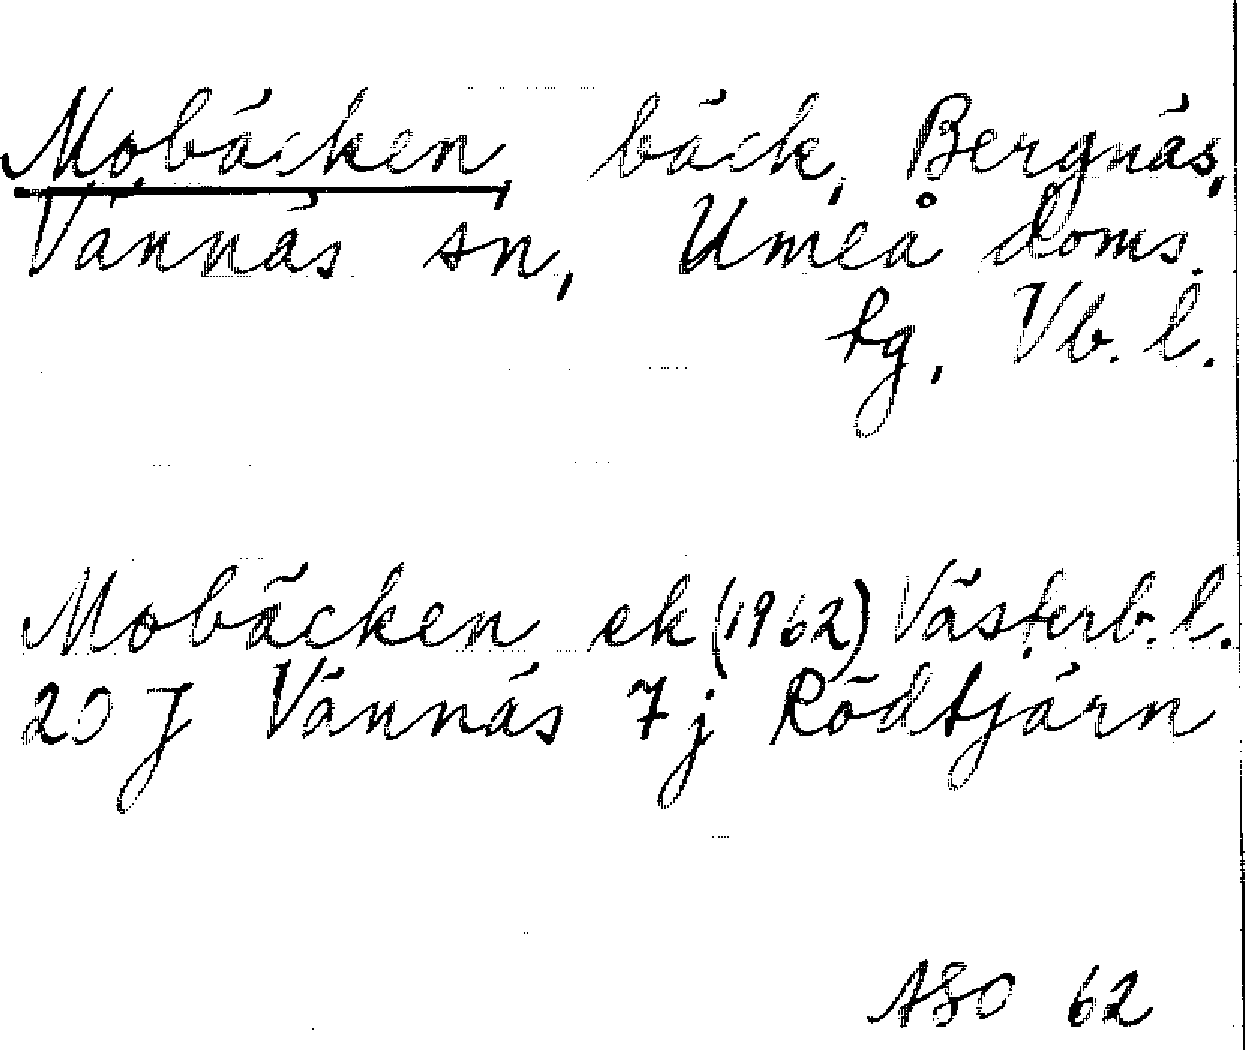 Mobäcken, bäck, Bergnäs,
Vännäs sn, Umeå doms.
tg, Vb. l.
Mobäcken ek (1962) Västerb. l.
20 J Vännäs 7 j Rödtjärn
ASO 62